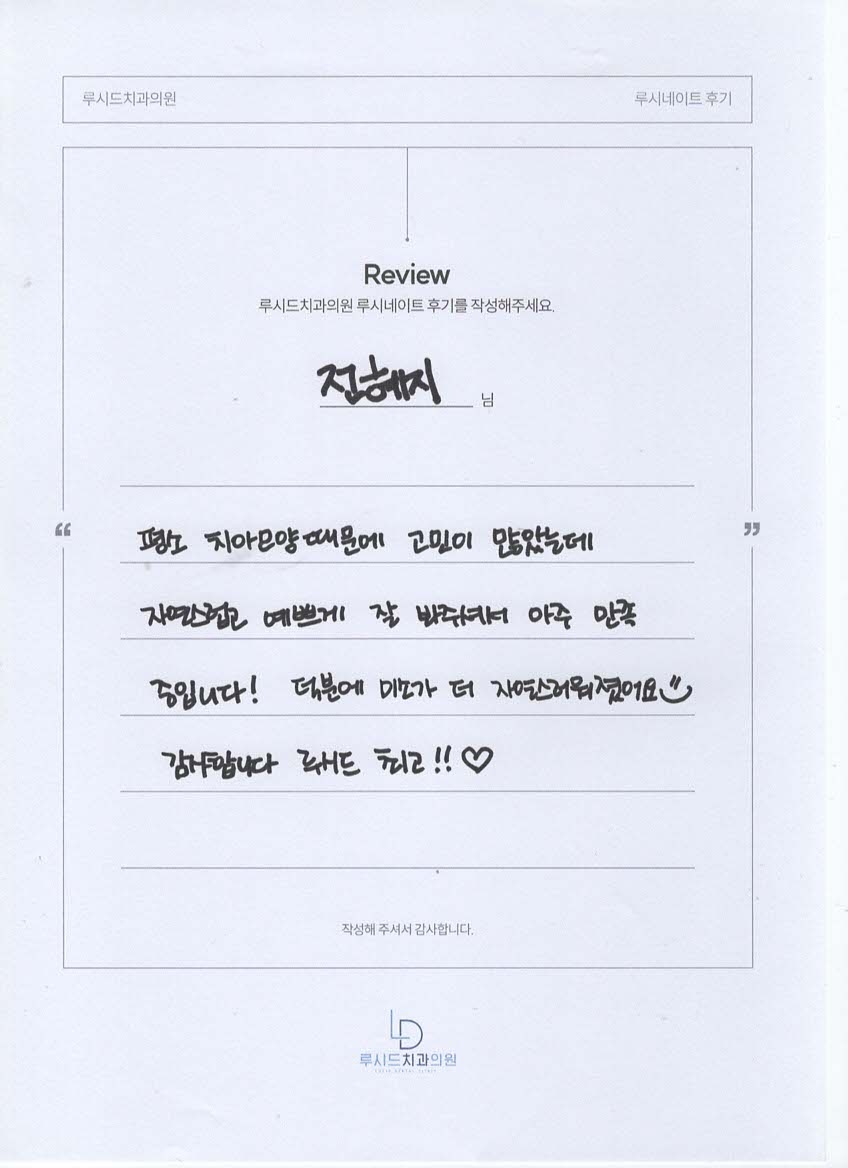 루시드치과의원 루시네이트 후기
Review
루시드치과의원 루시네이트 후기를 작성해주세요.
전혜지 님
“ ”
평소 치아모양때문에 고민이 많았는데
자연스럽고 예쁘게 잘 봐주셔서 아주 만족
중입니다! 덕분에 미소가 더 자연스러워졌어요
감사합니다 루시드 최고!! ♡
작성해 주셔서 감사합니다.
LD
루시드치과의원
LUCID DENTAL CLINIC